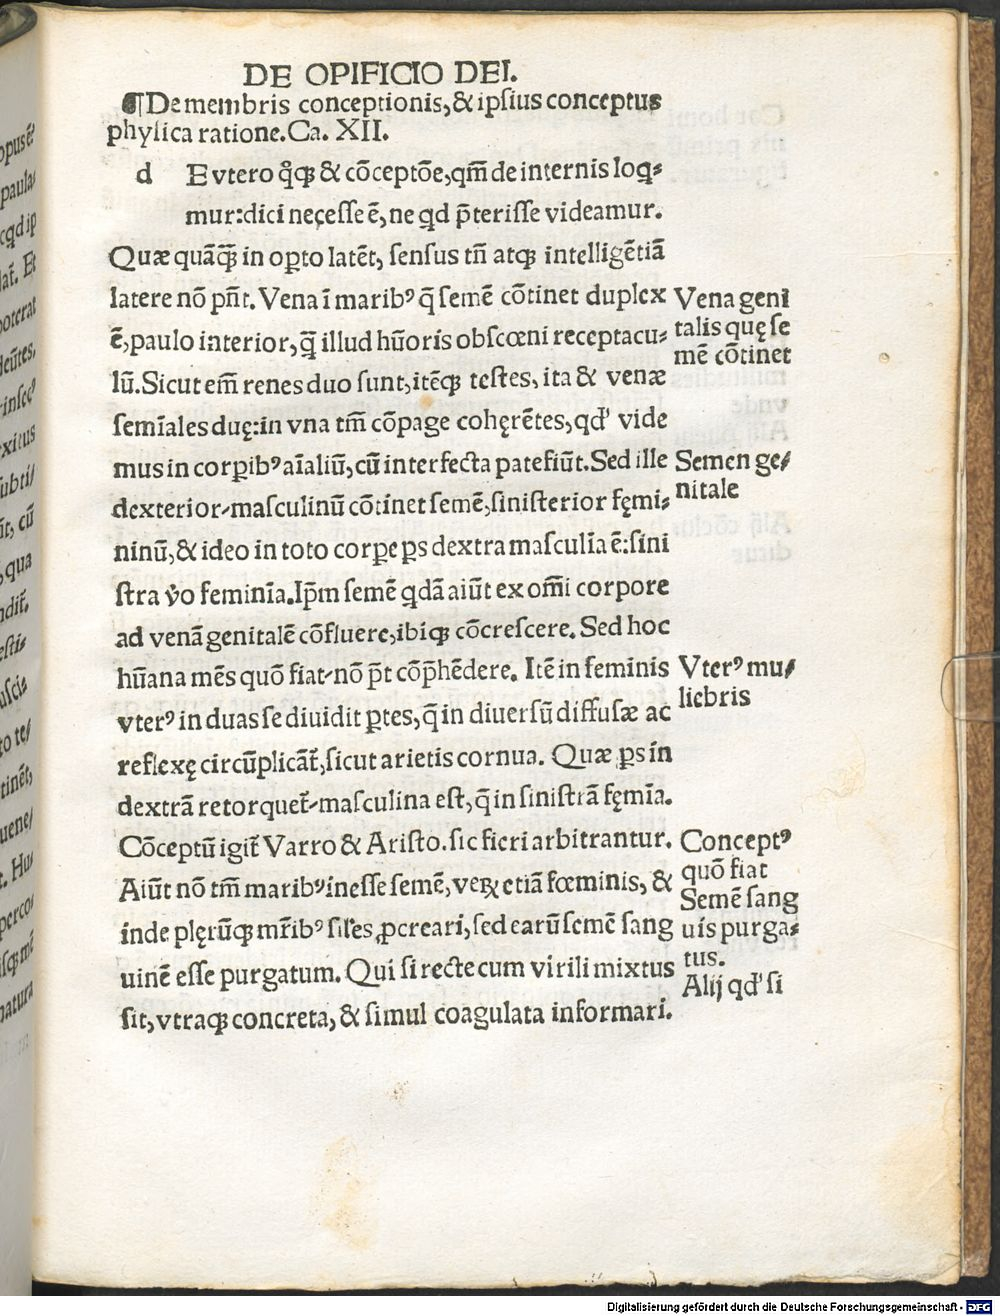 DE OPIFICIO DEI.
¶De membris conceptionis,& ipsius conceptus
physica ratione. Ca. XII.
d E vtero qͦꝙ & cōceptōe,qm̄ de internis loq⸗
mur:dici neçesse ē,ne qd p̄terisse videamur.
Quæ quāꝙ̄ in oꝑto latēt, sensus tn̄ atqꝫ intelligētiā
latere nō pn̄t. Vena ī maribꝰ q̄ semē cōtinet duplex
ē,paulo interior,q̄ illud hūoris obscœni receptacu⸗
lū.Sicut em̄ renes duo sunt,itēqꝫ testes, ita & venæ
semīales duę:in vna tm̄ cōpage cohęrētes,qd' vide
mus in corꝑibꝰ aīaliū,cū interfecta patefiūt.Sed ille
dexterior⸗masculinū cōtinet semē,sinisterior fęmi⸗
ninū,& ideo in toto corꝑe ꝑs dextra masculīa ē:sini
stra v̊o feminīa.Ip̄m semē qdā aiūt ex om̄i corpore
ad venā genitalē cōfluere,ibiqꝫ cōcrescere. Sed hoc
hūana mēs quō fiat⸗nō p̄t cōp̄hēdere. Itē in feminis
vterꝰ in duas se diuidit ꝑtes,q̄ in diuersū diffusæ ac
reflexę circūplicāt̄,sicut arietis cornua. Quæ ꝑs in
dextrā retorquet̄⸗masculina est,q̄ in sinistrā fęmīa.
Cōceptū igit̄ Varro & Aristo.sic fieri arbitrantur.
Aiūt nō tm̄ maribꝰ inesse semē,veꝝ etiā fœminis, &
inde plęrūqꝫ mr̄ibꝰ sil'es ꝓcreari,sed earū semē sang
uinē esse purgatum. Qui si recte cum virili mixtus
sit,vtraqꝫ concreta, & simul coagulata informari.
Vena geni
talis quę se
mē cōtinet
Semen ge⸗
nitale
Vterꝰ mu⸗
liebris
Conceptꝰ
quō fiat
Semē sang
uis purga⸗
tus.
Alij qd' si
Digitalisierung gefördert durch die Deutsche Forschungsgemeinschaft - DFG